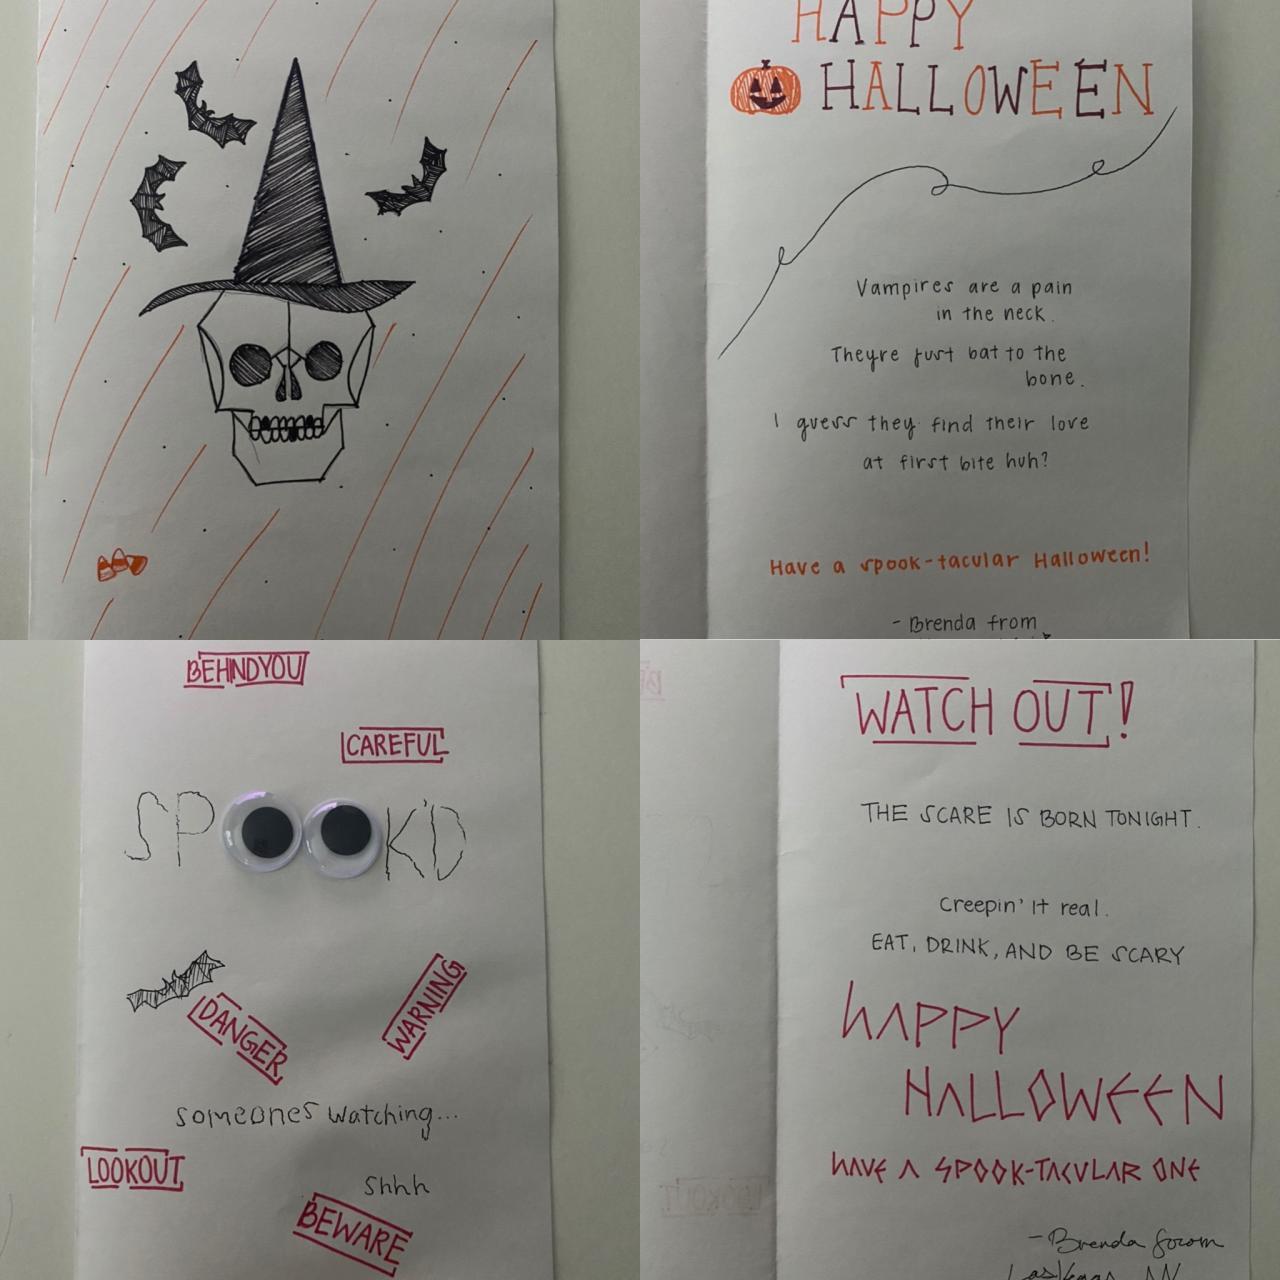 HAPPY
HALLOWEEN
Vampires are a pain
in the neck.
Theyre just bat to the
bone.
I guess they find their love
at first bite huh?
Have a spook-tacular Halloween!
- Brenda from
BEHINDYOU
CAREFUL
SPK'D
DANGER
WARNING
someones watching...
LOOKOUT
shhh
BEWARE
WATCH OUT!
THE SCARE IS BORN TONIGHT.
Creepin' it real.
EAT, DRINK, AND BE SCARY
HAPPY
HALLOWEEN
HAVE A SPOOK-TACULAR ONE
- Brenda from
Las Vegas, NV